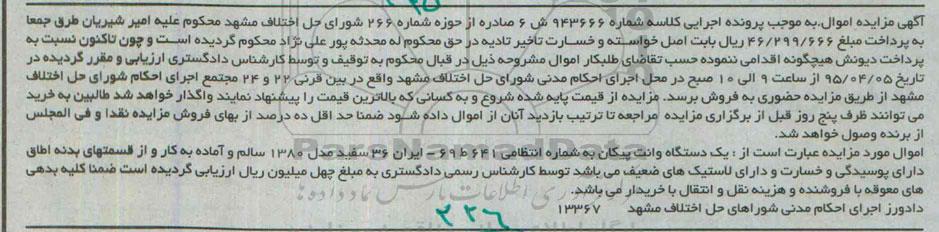 آگهی مزایده اموال.به موجب پرونده اجرایی کلاسه شماره ۹۴۳۶۶۶ ش ۶ صادره از حوزه شماره ۲۶۶ شورای حل اختلاف مشهد محکوم علیه امیر شیریان طرق جمعا
به پرداخت مبلغ ۴۶/۲۹۹/۶۶۶ ریال بابت اصل خواسته و خسارت تأخیر تادیه در حق محکوم له محدثه پور علی نژاد محکوم گردیده است و چون تاکنون نسبت به
پرداخت دیونش هیچگونه اقدامی ننموده حسب تقاضای طلبکار اموال مشروحه ذیل در قبال محکوم به توقیف و توسط کارشناس دادگستری ارزیابی و مقرر گردیده در
تاریخ ۹۵/۰۴/۰۵ از ساعت ۹ الی ۱۰ صبح در محل اجرای احکام مدنی شورای حل اختلاف مشهد واقع در بین قرنی ۲۲ و ۲۴ مجتمع اجرای احکام شورای حل اختلاف
مشهد از طریق مزایده حضوری به فروش برسد. مزایده از قیمت پایه شده شروع و به کسانی که بالاترین قیمت را پیشنهاد نمایند واگذار خواهد شد طالبین به خرید
می توانند ظرف پنج روز قبل از برگزاری مزایده مراجعه تا ترتیب بازدید آنان از اموال داده شود ضمنا حد اقل ده درصد از بهای فروش مزایده نقدا و فی المجلس
از برنده وصول خواهد شد.
اموال مورد مزایده عبارت است از : یک دستگاه وانت پیکان به شماره انتظامی ۶۴۱ - ۶۹ ایران ۳۶ سفید مدل ۱۳۸۰ سالم و آماده به کار و از قسمتهای بدنه اطاق
دارای پوسیدگی و خسارت و دارای لاستیک های ضعیف می باشد توسط کارشناس رسمی دادگستری به مبلغ چهل میلیون ریال ارزیابی گردیده است ضمنا کلیه بدهی
های معوقه با فروشنده و هزینه نقل و انتقال با خریدار می باشد.
دادورز اجرای احکام مدنی شوراهای حل اختلاف مشهد ۱۳۳۶۷
۲۲۶
ParsNamadData